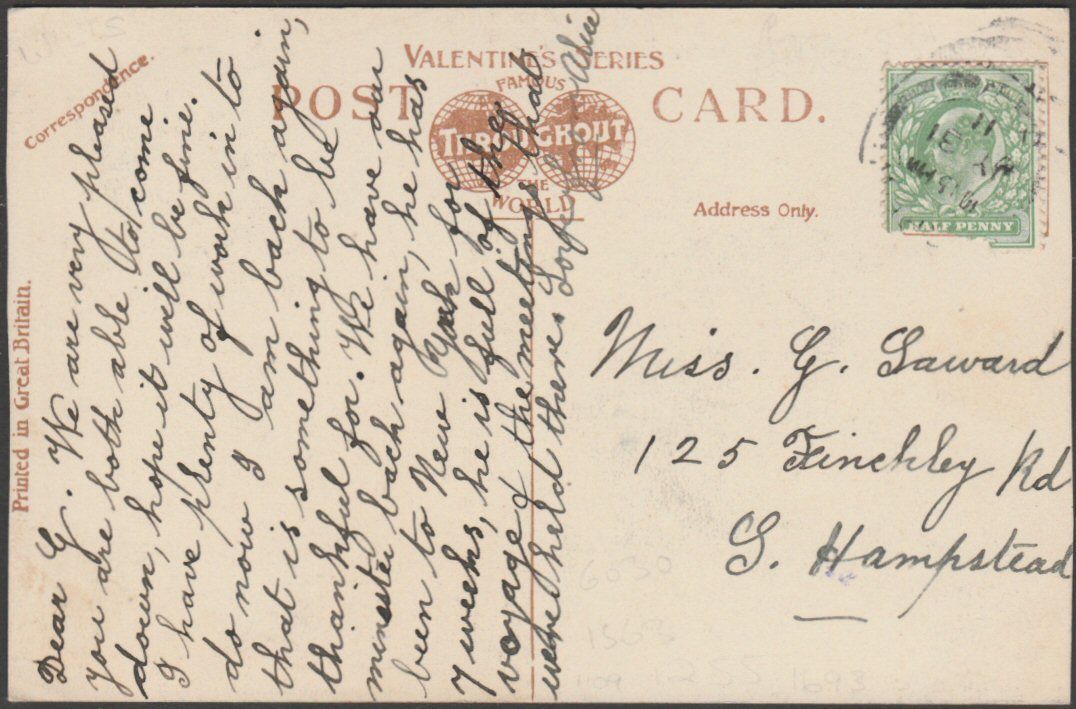 Correspondence.
VALENTINE'S SERIES
POST CARD.
FAMOUS
THROUGHOUT
THE
WORLD
Printed in Great Britain.
Address Only.
HALF PENNY
Dear G. We are very pleased
you are both able to come
down, hope it will be fine.
I have plenty of work in to
do now I am back again,
that is something to be
thankful for. We have our
minister back again, he has
been to New York for
7 weeks, he is full of the
voyage & the meetings that
were held there Love from Alice
Miss. G. Saward
125 Finchley Rd
S. Hampstead
6030
1563
1693